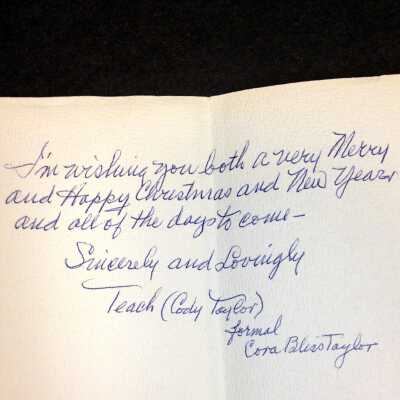 I'm wishing you both a very Merry
and Happy Christmas and New Year
and all of the days to come —
Sincerely and Lovingly
Teach (Cody Taylor)
formal
Cora Bliss Taylor